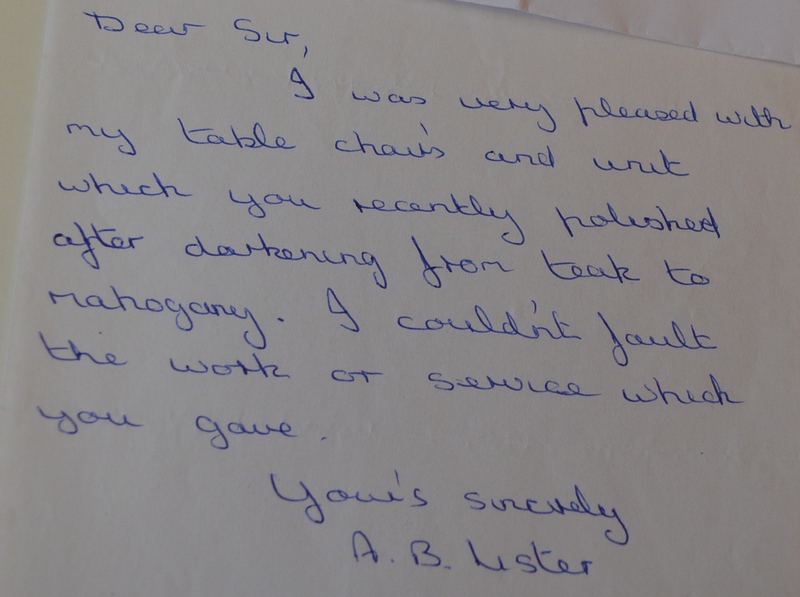 Dear Sir,
I was very pleased with
my table chairs and unit
which you recently polished
after darkening from teak to
mahogany. I couldn't fault
the work or service which
you gave.
Your's sincerely
A. B. Lister